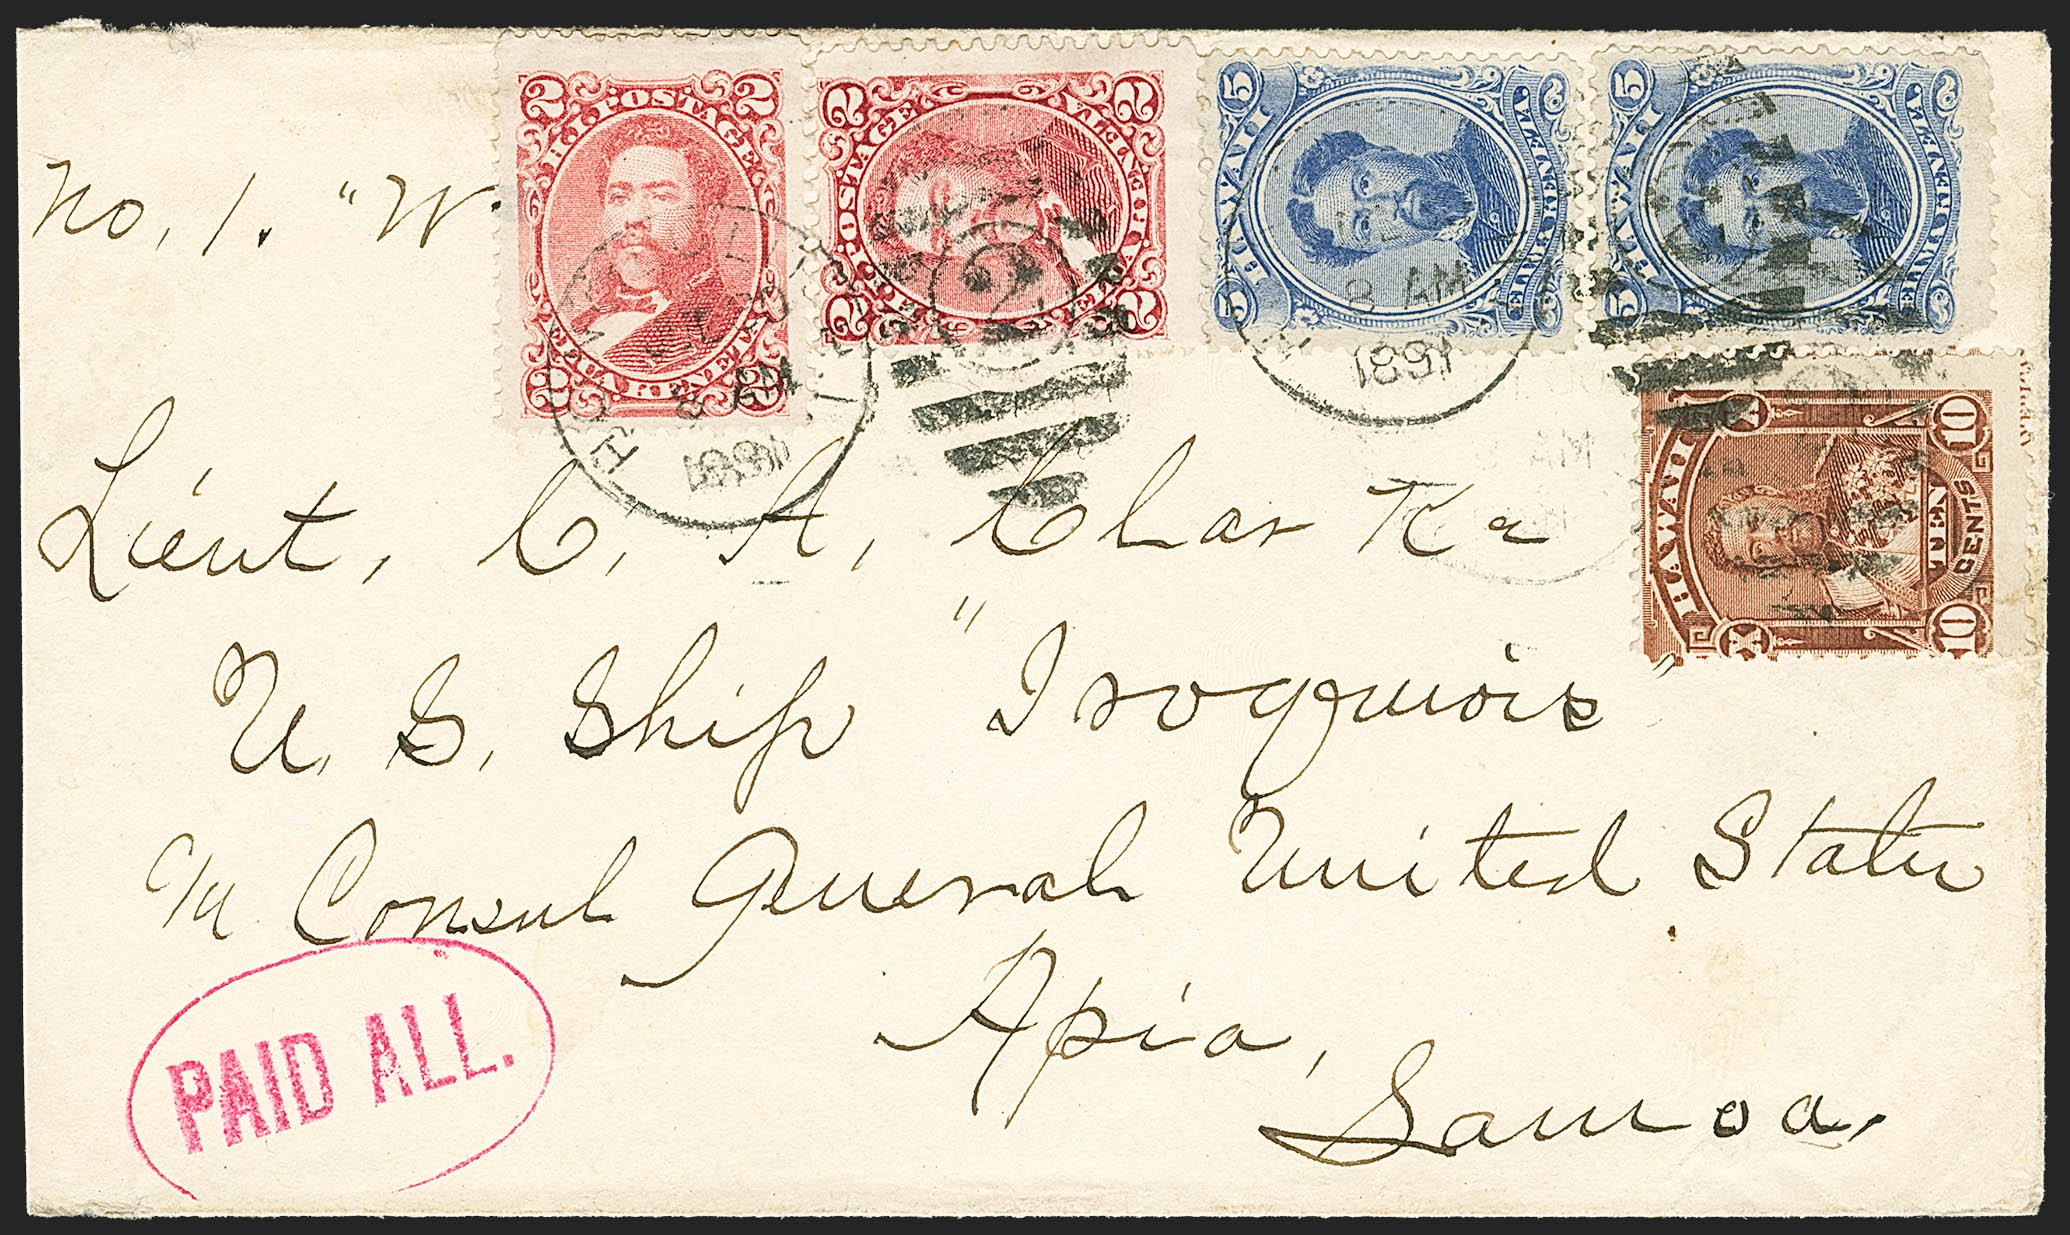 No, 1. "W.
2 2
HI. POSTAGE
ELUA KENETA
2 2
2 2
HI. POSTAGE
ELUA KENETA
2 2
5
HAWAII
5
ELIMA KENETA
5
HAWAII
5
ELIMA KENETA
X 10
HAWAII
TEN
CENTS
X 10
HONOLULU
8 AM
1881
2
8 AM
1881
Lieut, C, A, Clarke
U. S, Ship "Iroquois"
Consul General United States
Apia,
Samoa.
PAID ALL.